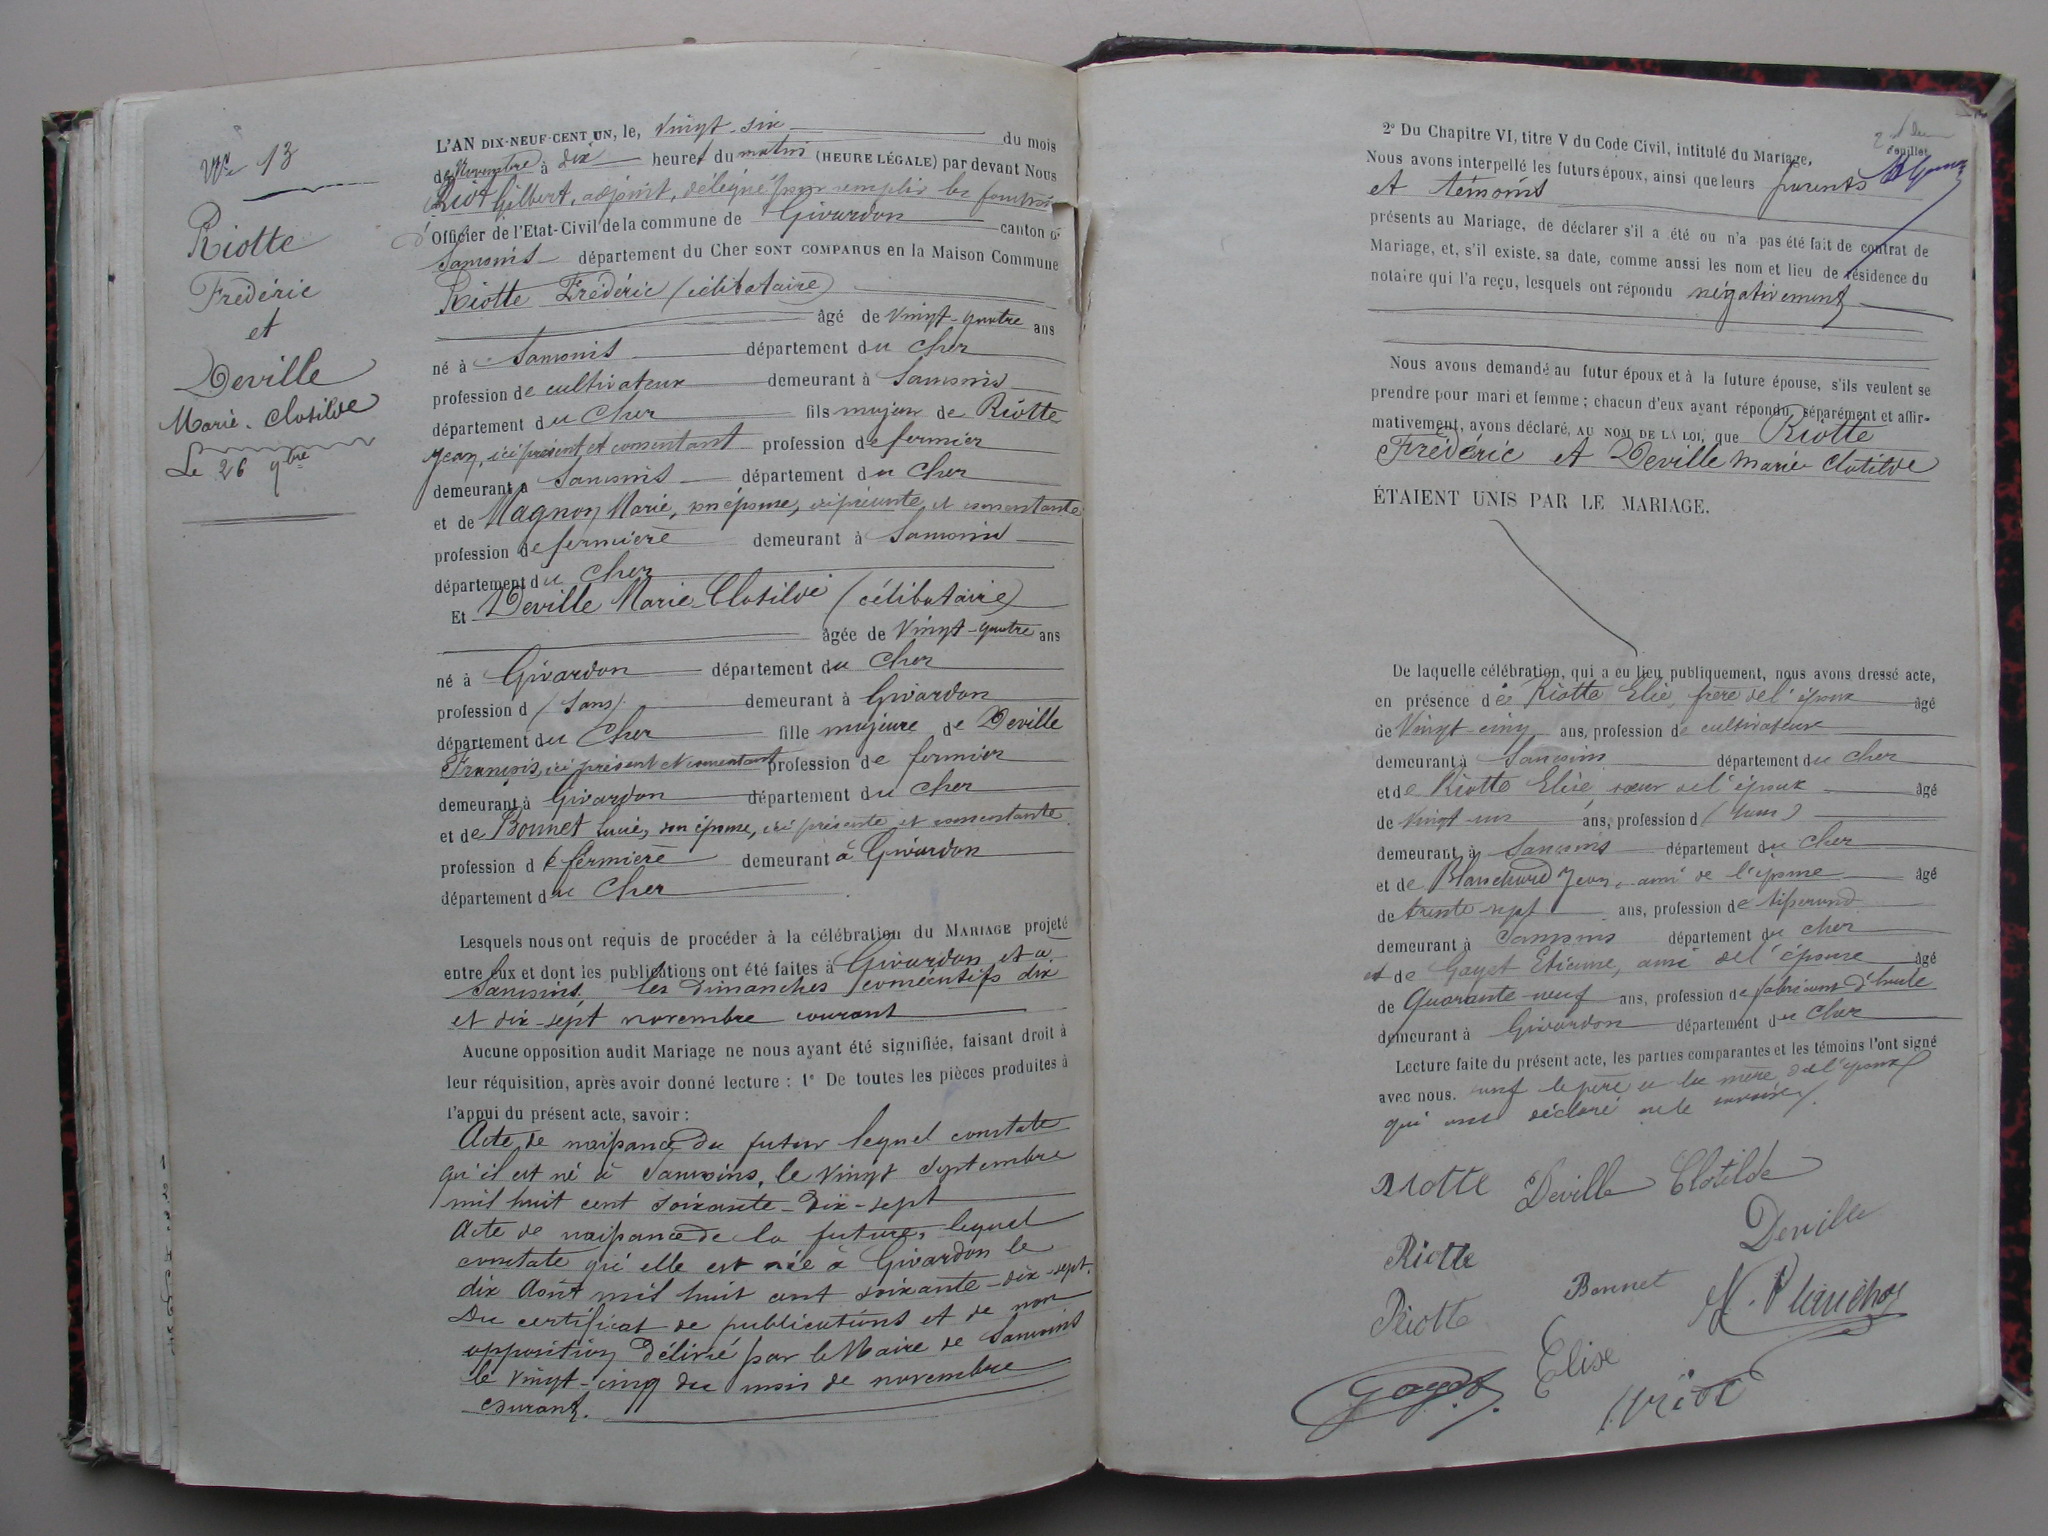 N° 13
Riotte
Frédéric
et
Deville
Marie-Clotilde
Le 26 9bre
L'AN DIX-NEUF-CENT UN, le, vingt-six du mois
de Novembre à dix heures du matin (HEURE LÉGALE) par devant Nous
Riot Gilbert, adjoint, délégué pour remplir les fonctions
d'Officier de l'Etat-Civil de la commune de Givardon canton de
Sancoins département du Cher SONT COMPARUS en la Maison Commune
Riotte Frédéric (célibataire)
âgé de vingt-quatre ans
né à Sancoins département du Cher
profession de cultivateur demeurant à Sancoins
département du Cher fils majeur de Riotte
Jean, ici présent et consentant profession de fermier
demeurant à Sancoins département du Cher
et de Magnon Marie, son épouse, ici présente et consentante
profession de fermière demeurant à Sancoins
département du Cher
Et Deville Marie-Clotilde (célibataire)
âgée de vingt-quatre ans
né à Givardon département du Cher
profession d (sans) demeurant à Givardon
département du Cher fille majeure de Deville
François, ici présent et consentant profession de fermier
demeurant à Givardon département du Cher
et de Bonnet Lucie, son épouse, ici présente et consentante
profession de fermière demeurant à Givardon
département du Cher
Lesquels nous ont requis de procéder à la célébration du MARIAGE projeté
entre eux et dont les publications ont été faites à Givardon et à
Sancoins les dimanches consécutifs dix
et dix-sept novembre courant
Aucune opposition audit Mariage ne nous ayant été signifiée, faisant droit à
leur réquisition, après avoir donné lecture : 1° De toutes les pièces produites à
l'appui du présent acte, savoir :
Acte de naissance du futur lequel constate
qu'il est né à Sancoins, le vingt septembre
mil huit cent soixante-dix-sept
Acte de naissance de la future, lequel
constate qu'elle est née à Givardon le
dix Août mil huit cent soixante-dix-sept.
Du certificat de publications et de non
opposition délivré par le Maire de Sancoins
le vingt-cinq du mois de novembre
courant.
2° Du Chapitre VI, titre V du Code Civil, intitulé du Mariage,
feuillet
Nous avons interpellé les futurs époux, ainsi que leurs parents
et témoins
présents au Mariage, de déclarer s'il a été ou n'a pas été fait de contrat de
Mariage, et, s'il existe, sa date, comme aussi les nom et lieu de résidence du
notaire qui l'a reçu, lesquels ont répondu négativement
Nous avons demandé au futur époux et à la future épouse, s'ils veulent se
prendre pour mari et femme ; chacun d'eux ayant répondu séparément et affir-
mativement, avons déclaré, AU NOM DE LA LOI, que Riotte
Frédéric et Deville Marie Clotilde
ÉTAIENT UNIS PAR LE MARIAGE.
De laquelle célébration, qui a eu lieu publiquement, nous avons dressé acte,
en présence de Riotte Elie, frère de l'époux âgé
de vingt-cinq ans, profession de cultivateur
demeurant à Sancoins département du Cher
et de Riotte Elise, sœur de l'époux âgé
de vingt-un ans, profession d (sans)
demeurant à Sancoins département du Cher
et de Blanchard Jean, ami de l'épouse âgé
de trente-sept ans, profession de tisserand
demeurant à Sancoins département du Cher
et de Gayet Etienne, ami de l'épouse âgé
de Quarante-neuf ans, profession de fabricant d'huile
demeurant à Givardon département du Cher
Lecture faite du présent acte, les parties comparantes et les témoins l'ont signé
avec nous. sauf le père et la mère de l'époux
qui ont déclaré ne le savoir.
Riotte Deville Clotilde
Deville
Riotte
Bonnet
Riotte
Elise
Gayet
Riot